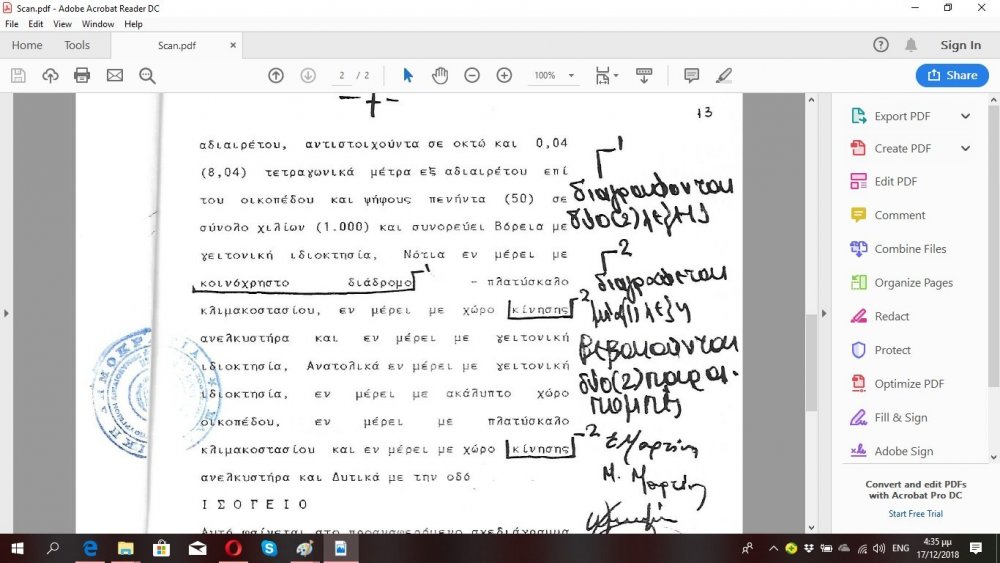 Scan.pdf - Adobe Acrobat Reader DC
File Edit View Window Help
Home Tools Scan.pdf × Sign In
2 / 2 100% Share
- 7 - 13
αδιαιρέτου, αντιστοιχούντα σε οκτώ και 0,04
(8,04) τετραγωνικά μέτρα εξ αδιαιρέτου επί
του οικοπέδου και ψήφους πενήντα (50) σε
σύνολο χιλίων (1.000) και συνορεύει Βόρεια με
γειτονική ιδιοκτησία, Νότια εν μέρει με
κοινόχρηστο διάδρομο 1 - πλατύσκαλο
κλιμακοστασίου, εν μέρει με χώρο κίνησης 2
ανελκυστήρα και εν μέρει με γειτονική
ιδιοκτησία, Ανατολικά εν μέρει με γειτονική
ιδιοκτησία, εν μέρει με ακάλυπτο χώρο
οικοπέδου, εν μέρει με πλατύσκαλο
κλιμακοστασίου και εν μέρει με χώρο κίνησης 2
ανελκυστήρα και Δυτικά με την οδό
ΙΣΟΓΕΙΟ
Αυτό φαίνεται στο προαναφερόμενο σχεδιάγραμμα
1
διαγράφονται
δύο (2) λέξεις
2
διαγράφεται
μία (1) λέξη
βεβαιούνται
δύο (2) παραπομπές
Μ.
Export PDF
Create PDF
Edit PDF
Comment
Combine Files
Organize Pages
Redact
Protect
Optimize PDF
Fill & Sign
Adobe Sign
Convert and edit PDFs
with Acrobat Pro DC
Start Free Trial
ENG
4:35 μμ
17/12/2018